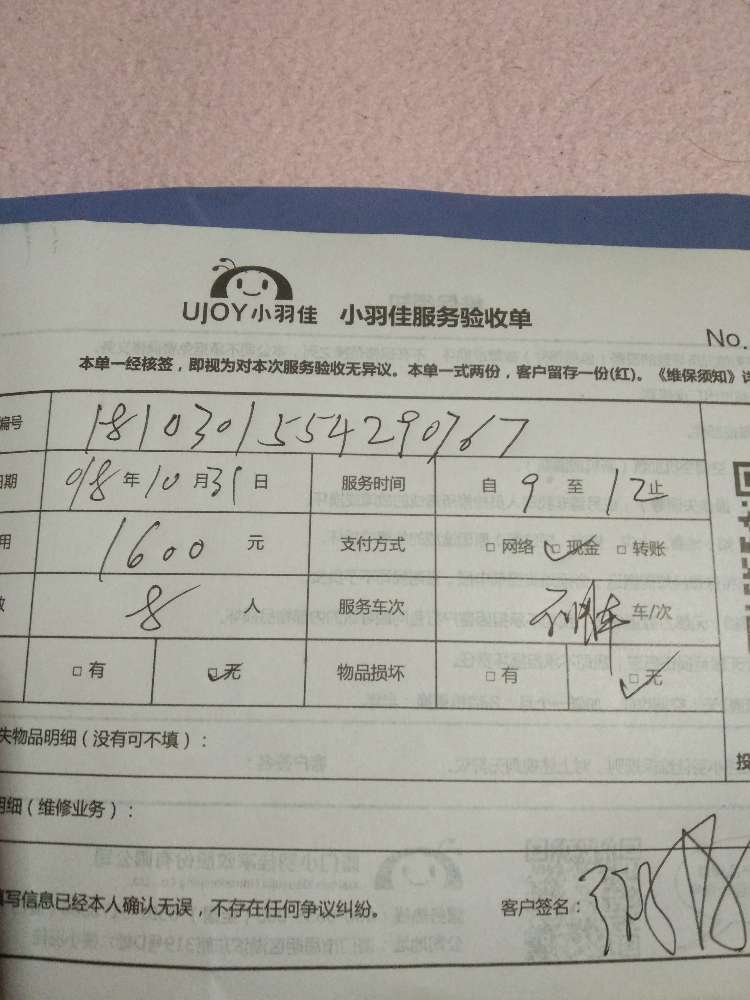 UJOY小羽佳 小羽佳服务验收单
No.
本单一经核签，即视为对本次服务验收无异议。本单一式两份，客户留存一份(红)。《维保须知》
编号 1810301554290767
日期 018年10月31日 服务时间 自9至12止
用 1600元 支付方式 □网络 □现金 □转账
8人 服务车次 车/次
□有 □无 物品损坏 □有 □无
失物品明细（没有可不填）：
投
明细（维修业务）：
填写信息已经本人确认无误，不存在任何争议纠纷。 客户签名：